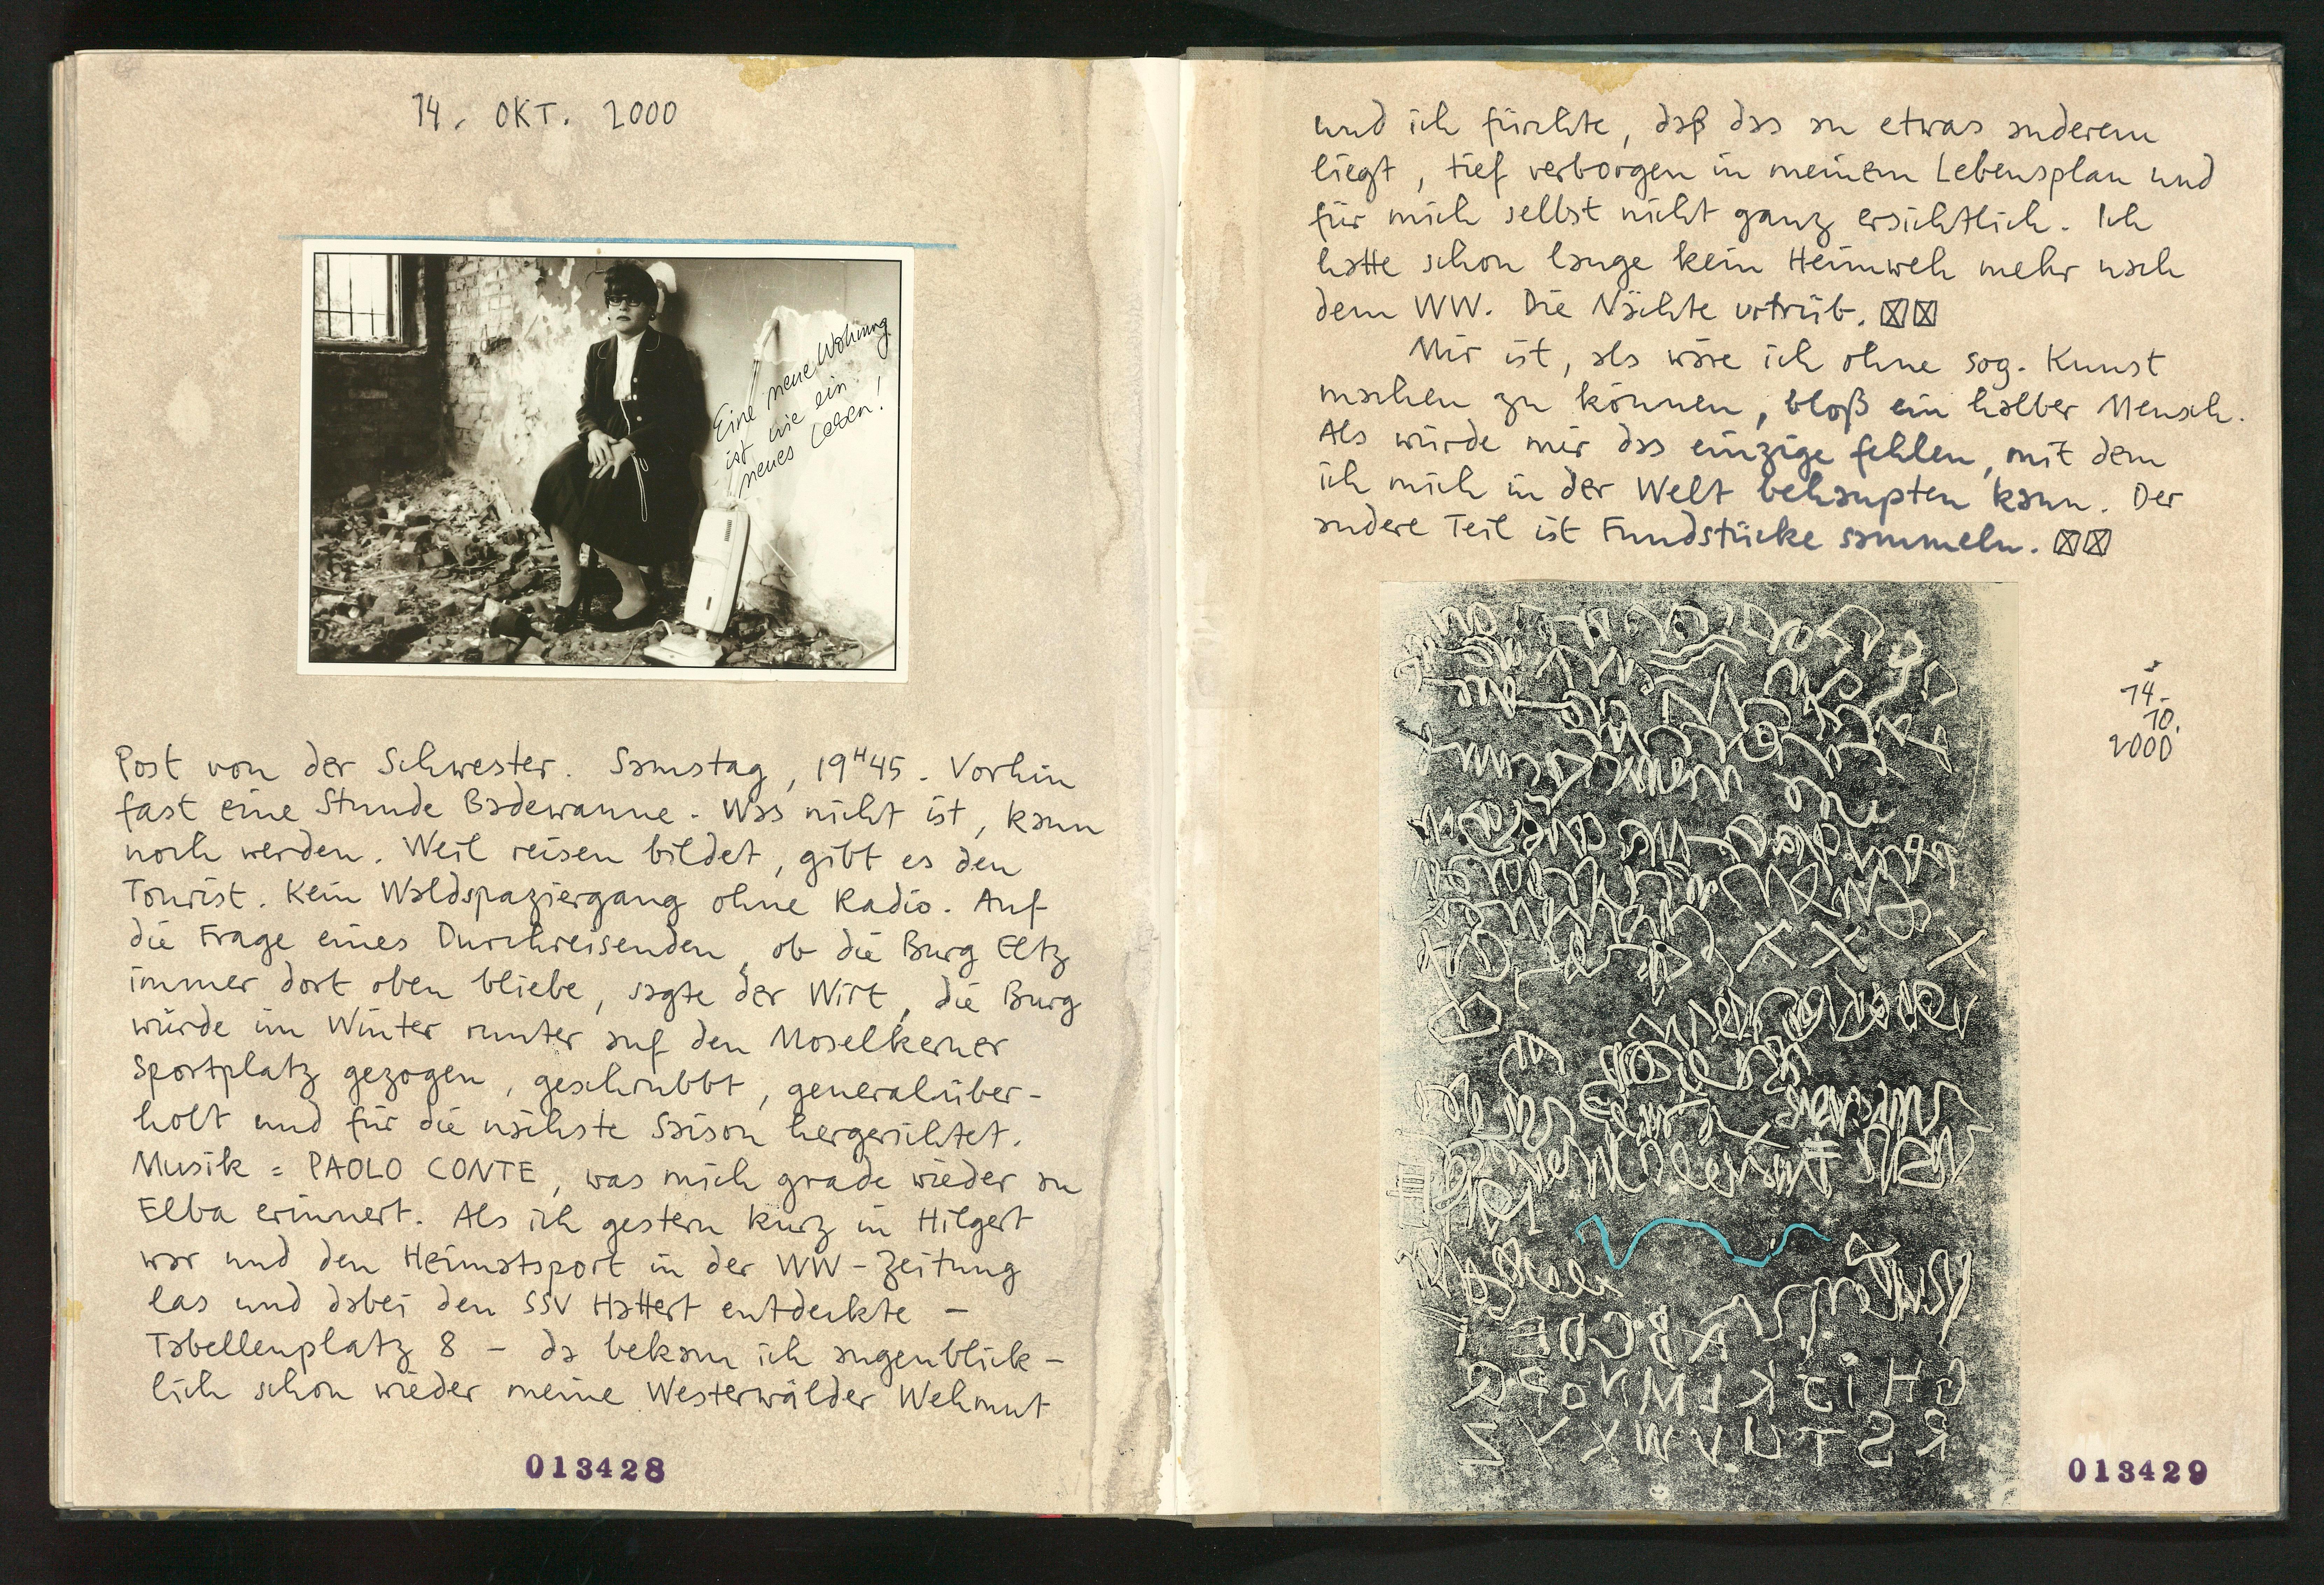 14. OKT. 2000
Eine neue Wohnung
ist wie ein
neues Leben!
Post von der Schwester. Samstag, 19H45. Vorhin
fast eine Stunde Badewanne. Was nicht ist, kann
noch werden. Weil reisen bildet, gibt es den
Tourist. Kein Waldspaziergang ohne Radio. Auf
die Frage eines Durchreisenden, ob die Burg Eltz
immer dort oben bliebe, sagte der Wirt, die Burg
würde im Winter runter auf den Moselkerner
Sportplatz gezogen, geschrubbt, generalüber-
holt und für die nächste Saison hergerichtet.
Musik = PAOLO CONTE, was mich grade wieder an
Elba erinnert. Als ich gestern kurz in Hilgert
war und den Heimatsport in der WW-Zeitung
las und dabei den SSV Hattert entdeckte –
Tabellenplatz 8 – da bekam ich augenblick-
lich schon wieder meine Westerwälder Wehmut
013428
und ich fürchte, daß das an etwas anderem
liegt, tief verborgen in meinem Lebensplan und
für mich selbst nicht ganz ersichtlich. Ich
hatte schon lange kein Heimweh mehr nach
dem WW. Die Nächte
Mir ist, als wäre ich ohne sog. Kunst
machen zu können, bloß ein halber Mensch.
Als würde mir das einzige fehlen, mit dem
ich mich in der Welt behaupten kann. Der
andere Teil ist Fundstücke sammeln.
14.
10.
2000
013429